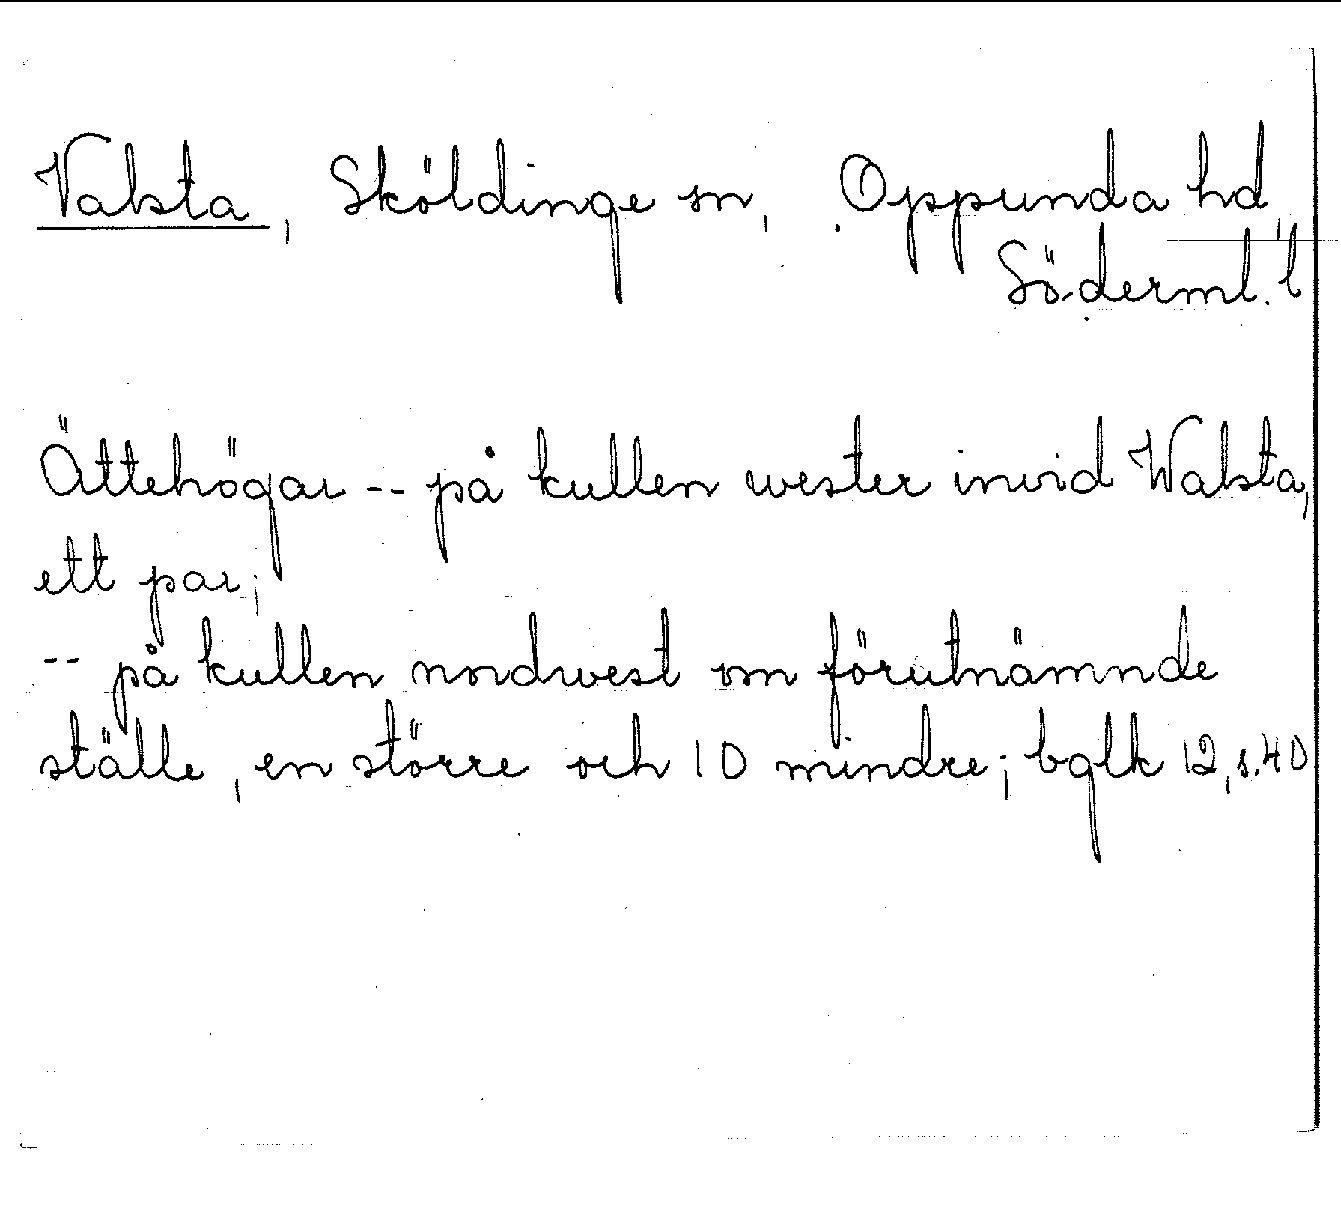 Valsta, Sköldinge sn, Oppunda hd,
Söderml. l
Ättehögar -- på kullen wester invid Walsta,
ett par;
-- på kullen nordwest om förutnämnde
ställe, en större och 10 mindre; bglk 12, s. 40